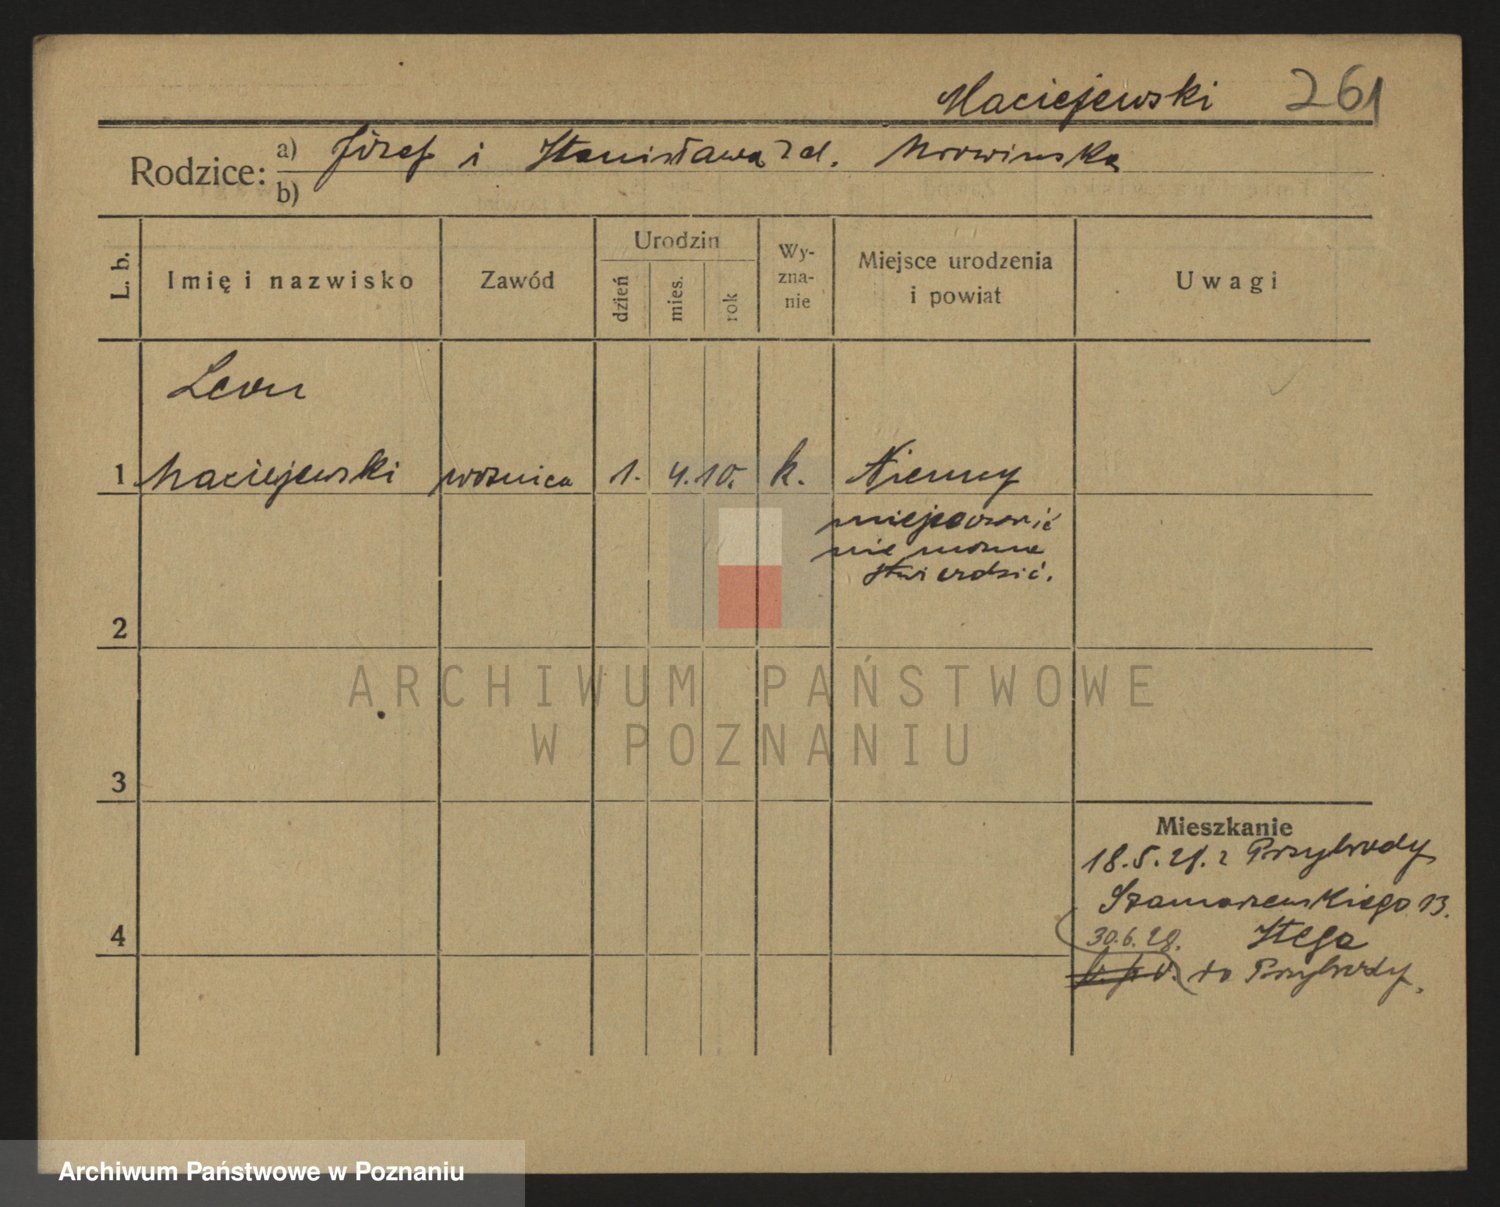 Maciejewski 261
Rodzice: a) Józef i Stanisława z d. Mrowinska
b)
L. b. Imię i nazwisko Zawód Urodzin dzień mies. rok Wy-zna-nie Miejsce urodzenia i powiat Uwagi
Leon
1 Maciejewski woznica 1. 4. 10. k. Niemcy
miejscowość
nie mozna
stwierdzić.
2
ARCHIWUM PAŃSTWOWE
W POZNANIU
3
Mieszkanie
18.5.28. z Przybrody
Szamarzewskiego 13.
4
30.6.28. Stega
do Przybrody.
Archiwum Państwowe w Poznaniu